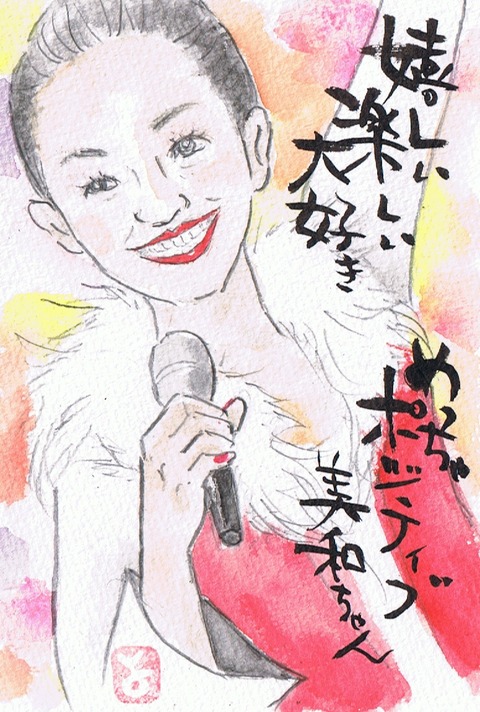 嬉しい
楽しい
大好き
めっちゃ
ポジティブ
美和ちゃん